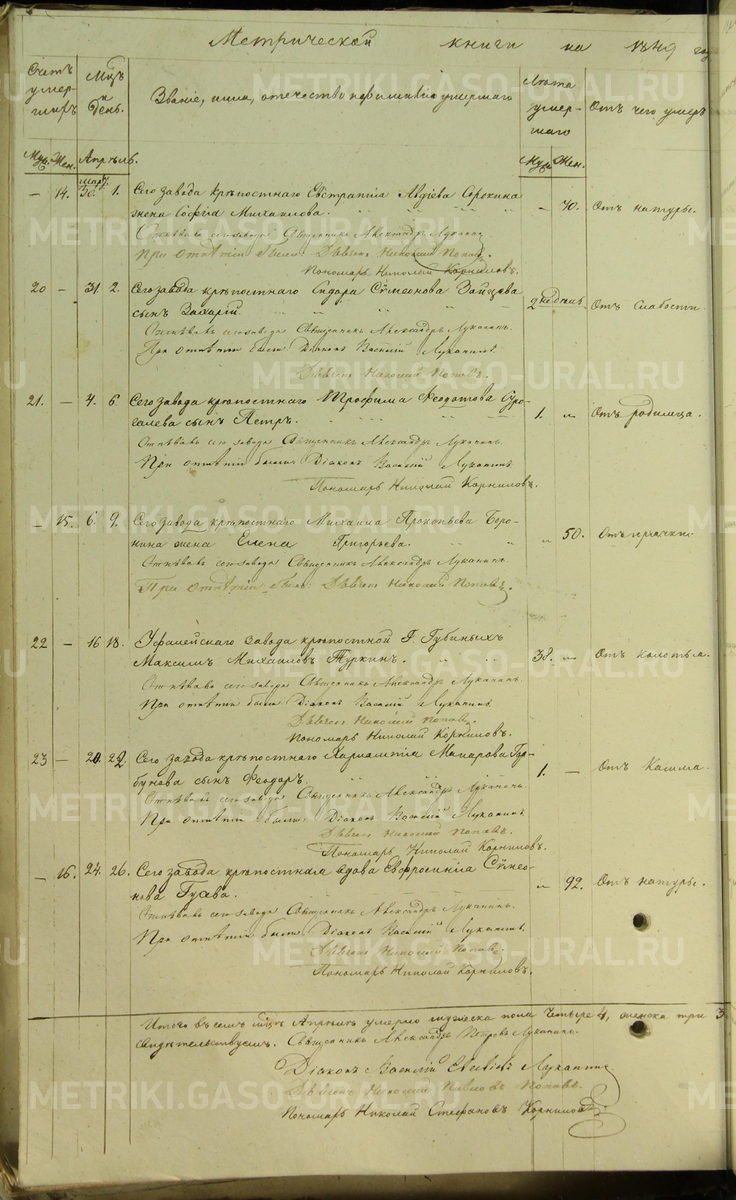 Метрической книги на 1849 го
Счетъ умершихъ
Мѣз и День.
Званіе, имя, отечество и фамилія умершаго
Лѣта умершаго
Отъ чего умеръ
Муж. Жен. Апрѣль. Муж. Жен.
Март.
— 14. 30. 1. Сего завода крѣпостнаго Евстрапія Авдіева Сорокина — 70. Отъ натуры.
жена Софія Михаилова.
Отпѣвалъ сего завода Священникъ Александръ Луканинъ.
При отпѣтіи были: Дьячекъ Николай Поповъ.
Пономарь Николай Корниловъ.
20 — 31. 2. Сего завода крѣпостнаго Сидора Сѵмеонова Зайцева 2 недѣль Отъ слабости.
сынъ Захарій.
Отпѣвалъ сего завода Священникъ Александръ Луканинъ.
При отпѣтіи были Діаконъ Василій Луканинъ.
Дьячекъ Николай Поповъ.
21. — 4. 6. Сего завода крѣпостнаго Трофима Феодотова Суро- 1. „ Отъ родимца.
сынъ Петръ.
Отпѣвалъ сего завода Священникъ Александръ Луканинъ.
При отпѣтіи были: Діаконъ Василій Луканинъ.
Пономарь Николай Корниловъ.
— 15. 6. 9. Сего завода крѣпостнаго Михаила Прокопьева Боро- „ 50. Отъ горячки.
нина жена Елена Григорьева.
Отпѣвалъ сего завода Священникъ Александръ Луканинъ.
При отпѣтіи былъ: Дьячекъ Николай Поповъ.
22 — 16 18. Уфалейскаго завода крѣпостной Г. Губиныхъ 38. — Отъ колотья.
Максимъ Михаиловъ Туркинъ.
Отпѣвалъ сего завода Священникъ Александръ Луканинъ.
При отпѣтіи были Діаконъ Василій Луканинъ.
Дьячекъ Николай Поповъ.
Пономарь Николай Корниловъ.
23 — 20. 22. Сего завода крѣпостнаго Харлампія Макарова Гор- 1. — Отъ кашля.
бунова сынъ Феодоръ.
Отпѣвалъ сего завода Священникъ Александръ Луканинъ.
При отпѣтіи были: Діаконъ Василій Луканинъ
Дьячекъ Николай Поповъ.
Пономарь Николай Корниловъ.
— 16. 24. 26. Сего завода крѣпостная вдова Евфросинія Сѵмео- „ 92. Отъ натуры.
нова Гусева.
Отпѣвалъ сего завода Священникъ Александръ Луканинъ.
При отпѣтіи были Діаконъ Василій Луканинъ.
Дьячекъ Николай Поповъ.
Пономарь Николай Корниловъ.
Итого въ семъ мѣсяцѣ Апрѣлѣ умерло мужеска пола четыре 4, женска три 3.
свидѣтельствуемъ. Священникъ Александръ Петровъ Луканинъ.
Діаконъ Василій Луканинъ
Дьячекъ Николай Павловъ Поповъ.
Пономарь Николай Стефановъ Корниловъ.
METRIKI.GASO-URAL.RU